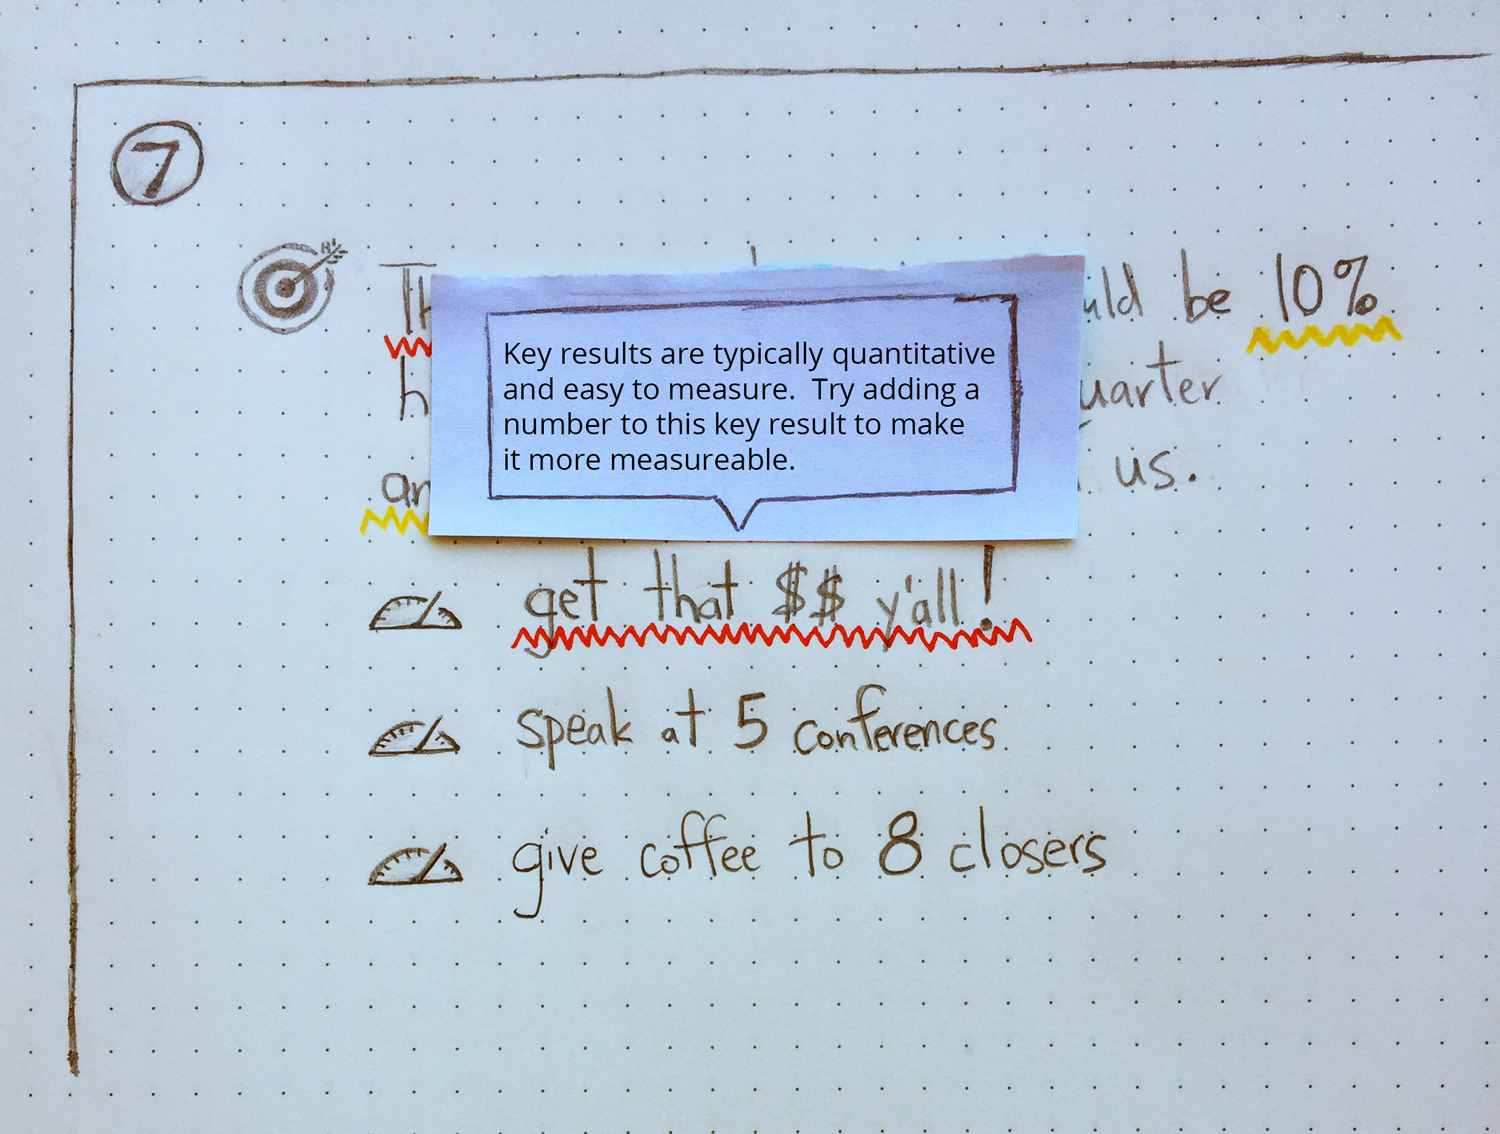 7
be 10%
us.
Key results are typically quantitative
and easy to measure. Try adding a
number to this key result to make
it more measureable.
get that $$ y'all!
speak at 5 conferences
give coffee to 8 closers